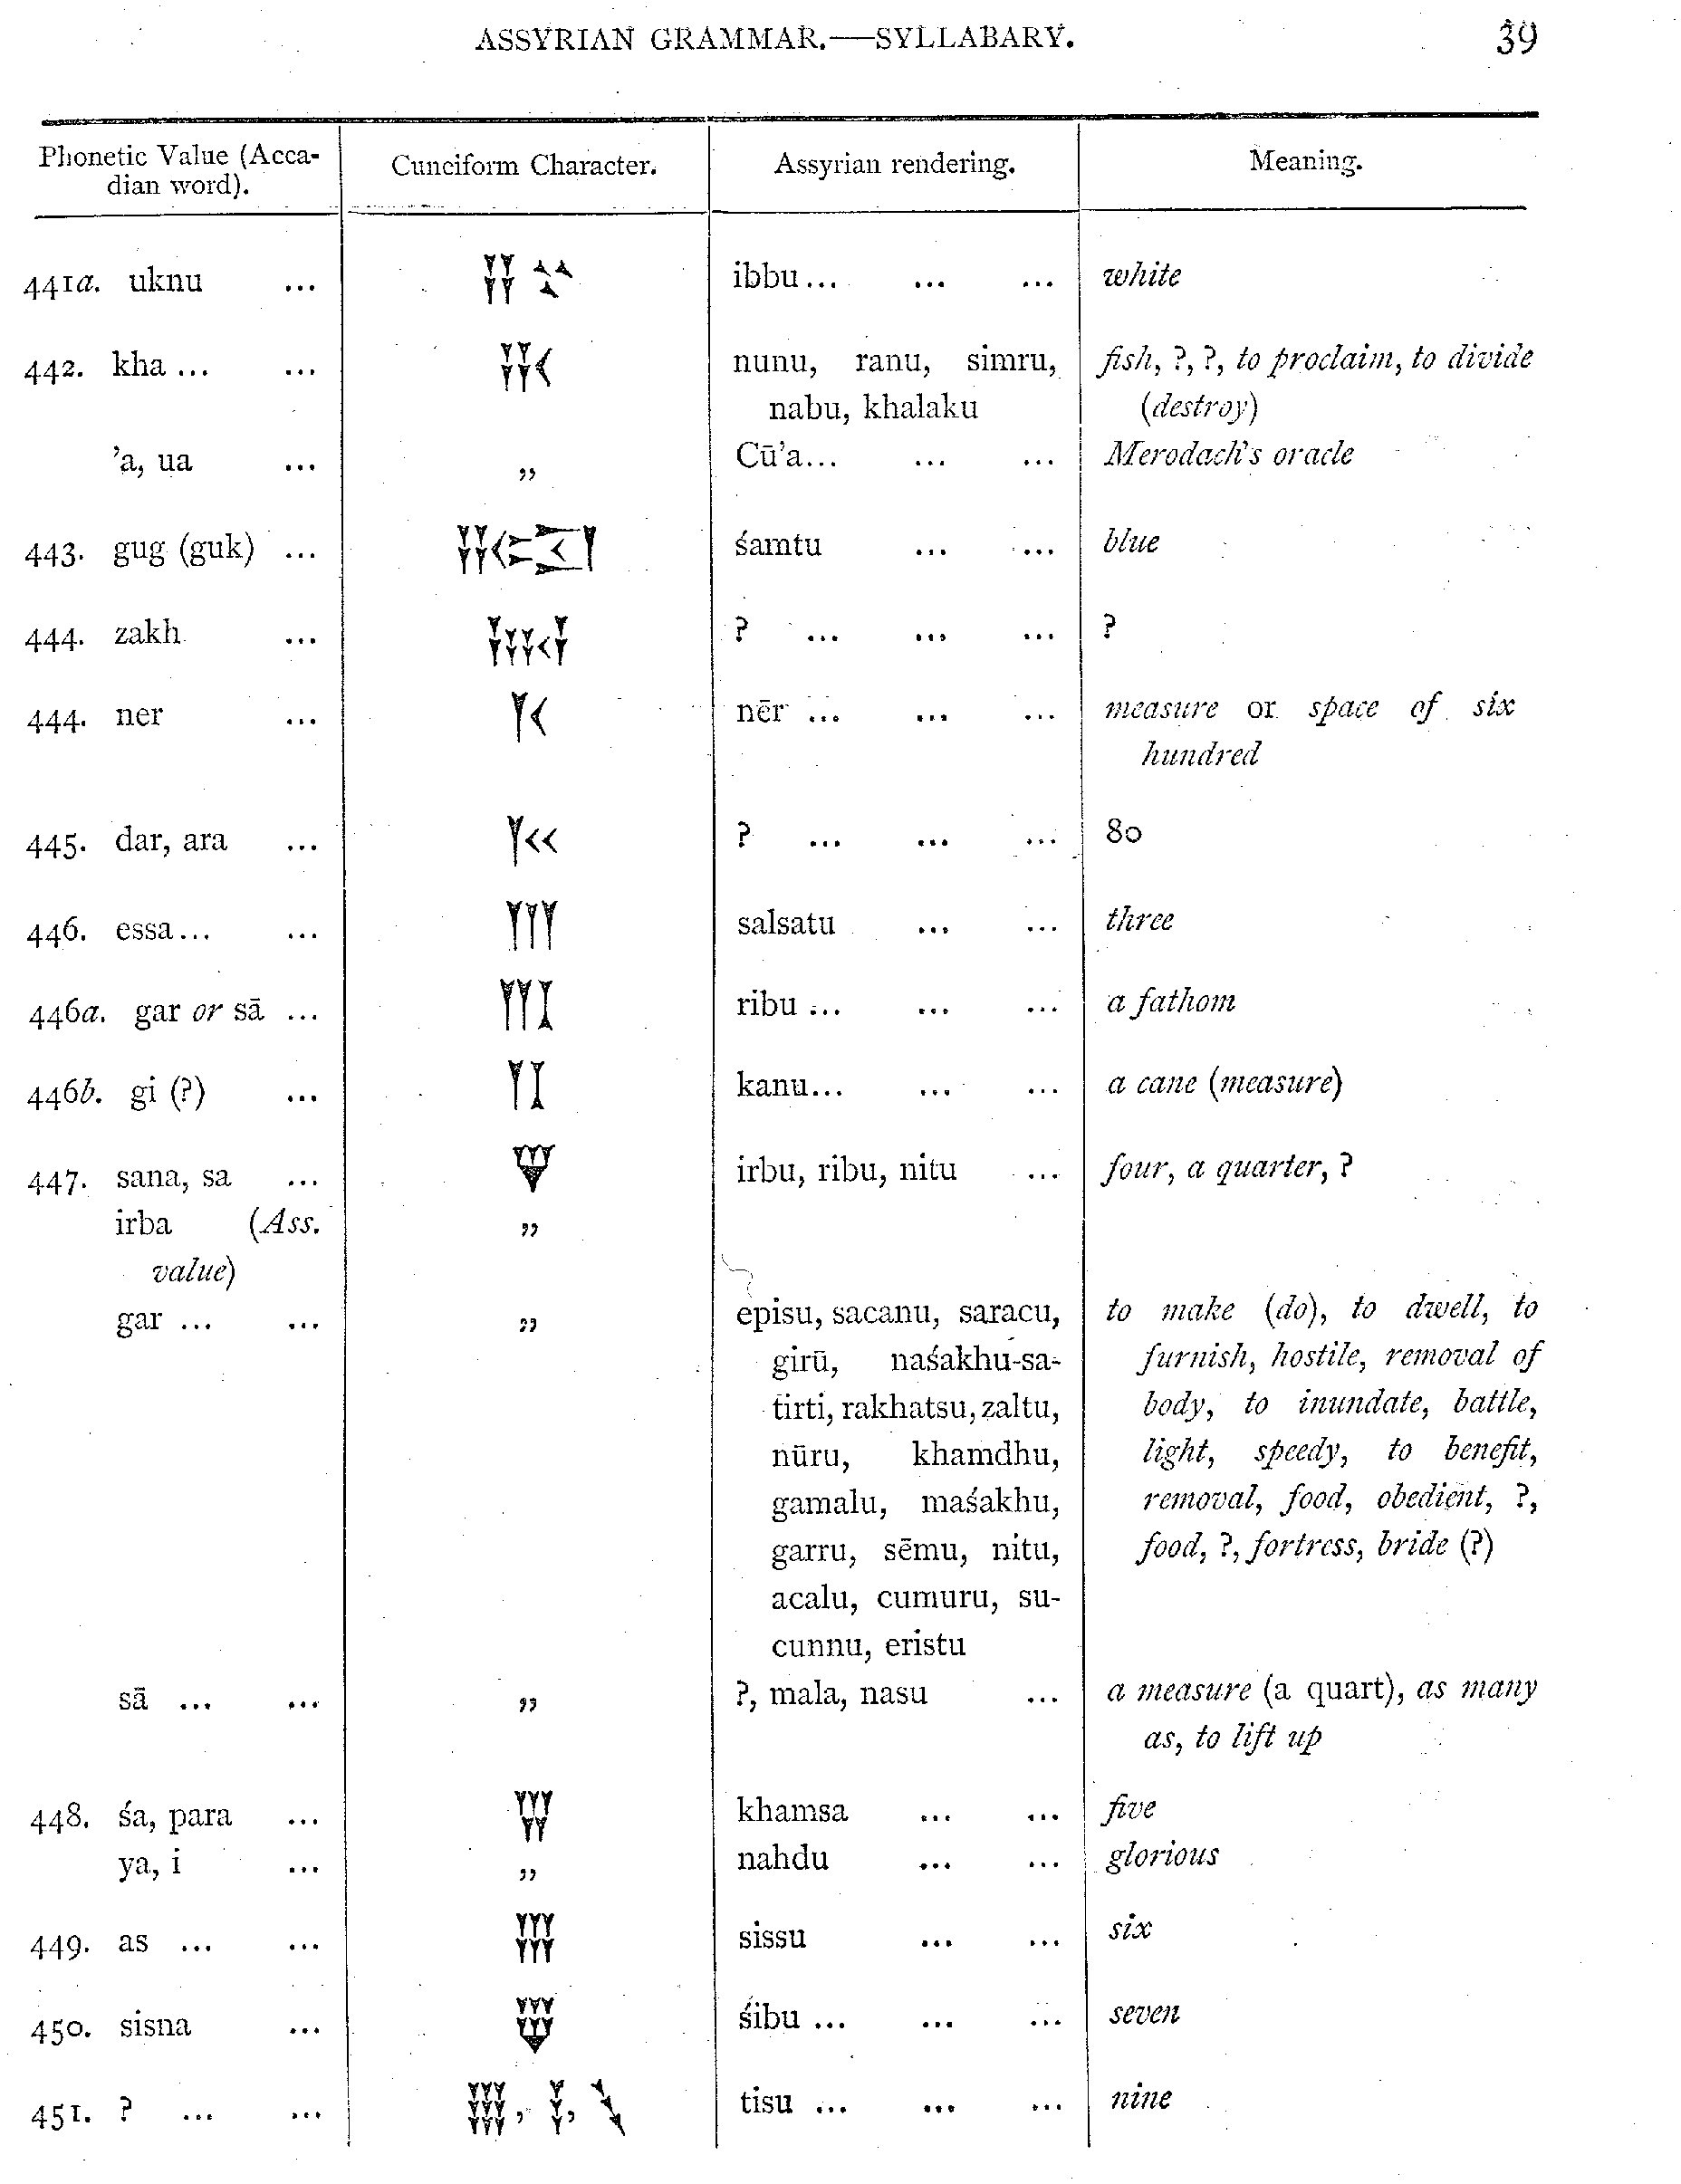 ASSYRIAN GRAMMAR.—SYLLABARY. 39
Phonetic Value (Acca- Cuneiform Character. Assyrian rendering. Meaning.
dian word).
441a. uknu ... ibbu ... ... ... white
442. kha ... ... nunu, ranu, simru, fish, ?, ?, to proclaim, to divide
nabu, khalaku (destroy)
'a, ua ... ,, Cū'a... ... ... Merodach's oracle
443. gug (guk) ... śamtu ... ... blue
444. zakh ... ? ... ... ... ?
444. ner ... 𒐞 nēr ... ... ... measure or space of six
hundred
445. dar, ara ... ? ... ... ... 80
446. essa... ... 𒐈 salsatu ... ... three
446a. gar or sā ... ribu ... ... ... a fathom
446b. gi (?) ... kanu... ... ... a cane (measure)
447. sana, sa ... 𒐉 irbu, ribu, nitu ... four, a quarter, ?
irba (Ass. ,,
value)
gar ... ... ,, episu, sacanu, saracu, to make (do), to dwell, to
girū, naśakhu-sa- furnish, hostile, removal of
tirti, rakhatsu, zaltu, body, to inundate, battle,
nūru, khamdhu, light, speedy, to benefit,
gamalu, maśakhu, removal, food, obedient, ?,
garru, sēmu, nitu, food, ?, fortress, bride (?)
acalu, cumuru, su-
cunnu, eristu
sā ... ... ,, ?, mala, nasu ... a measure (a quart), as many
as, to lift up
448. śa, para ... 𒐊 khamsa ... ... five
ya, i ... ,, nahdu ... ... glorious
449. as ... ... 𒐋 sissu ... ... six
450. sisna ... 𒐌 śibu ... ... ... seven
451. ? ... ... 𒐎, tisu ... ... ... nine